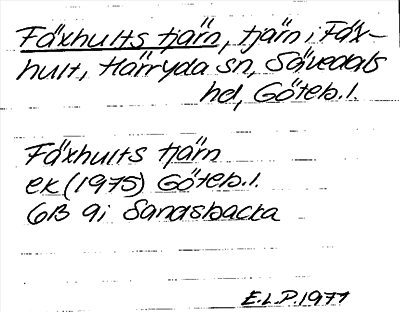 Fäxhults tjärn, tjärn i Fäx-
hult, Härryda sn, Sävedals
hd, Göteb. l.
Fäxhults tjärn
ek (1975) Göteb. l.
6B 9i Sandsbacka
E.L.P. 1977